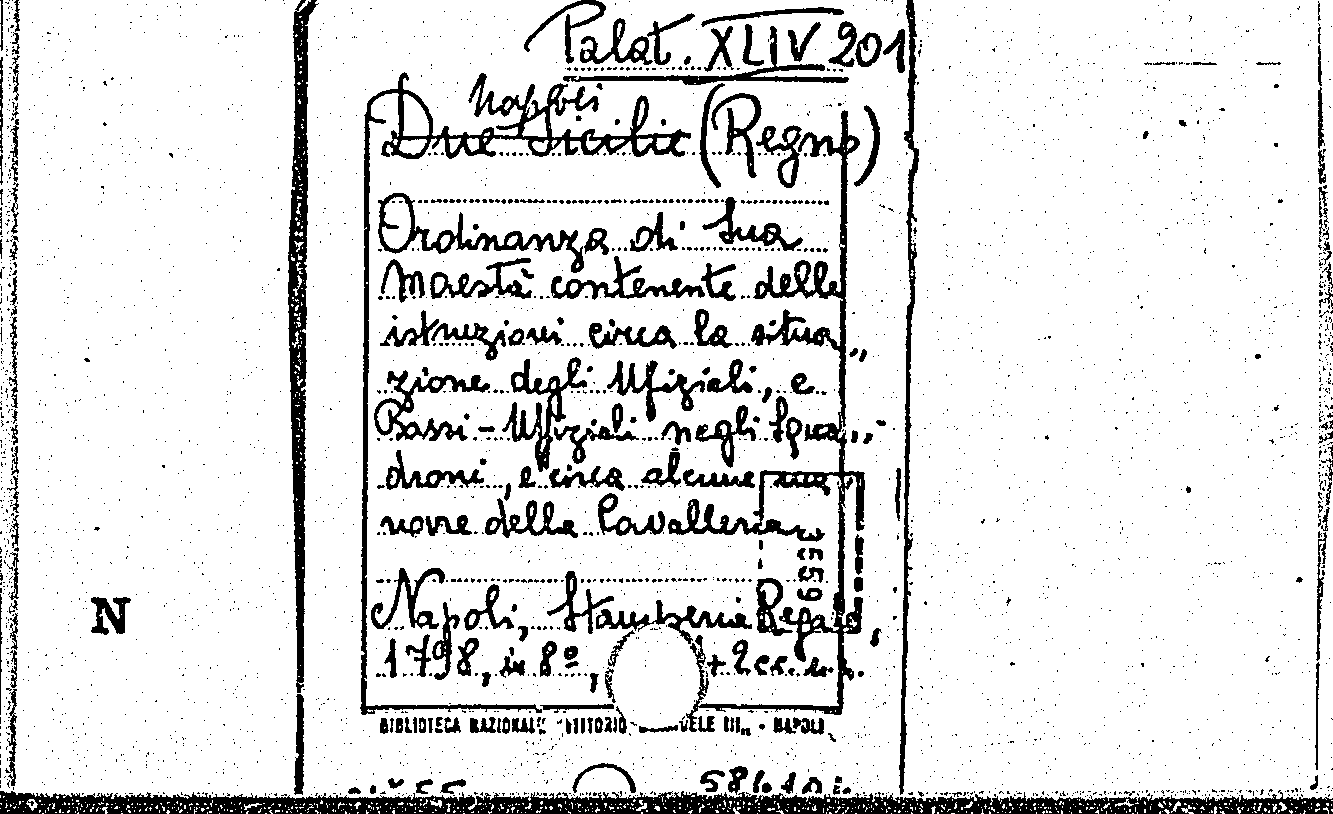 Palat. XLIV 201
Napoli
Due Sicilie (Regno)
Ordinanza di Sua
Maestà contenente delle
istruzioni circa la situa„
zione degli Ufiziali, e
Bassi-Uffiziali negli Squa„
droni, e circa alcune ma„
novre della Cavalleria
3559
Napoli, Stamperia Regale,
1798, in 8º, + 2 cc. n. n.
BIBLIOTECA NAZIONALE "VITTORIO III„ - NAPOLI
N